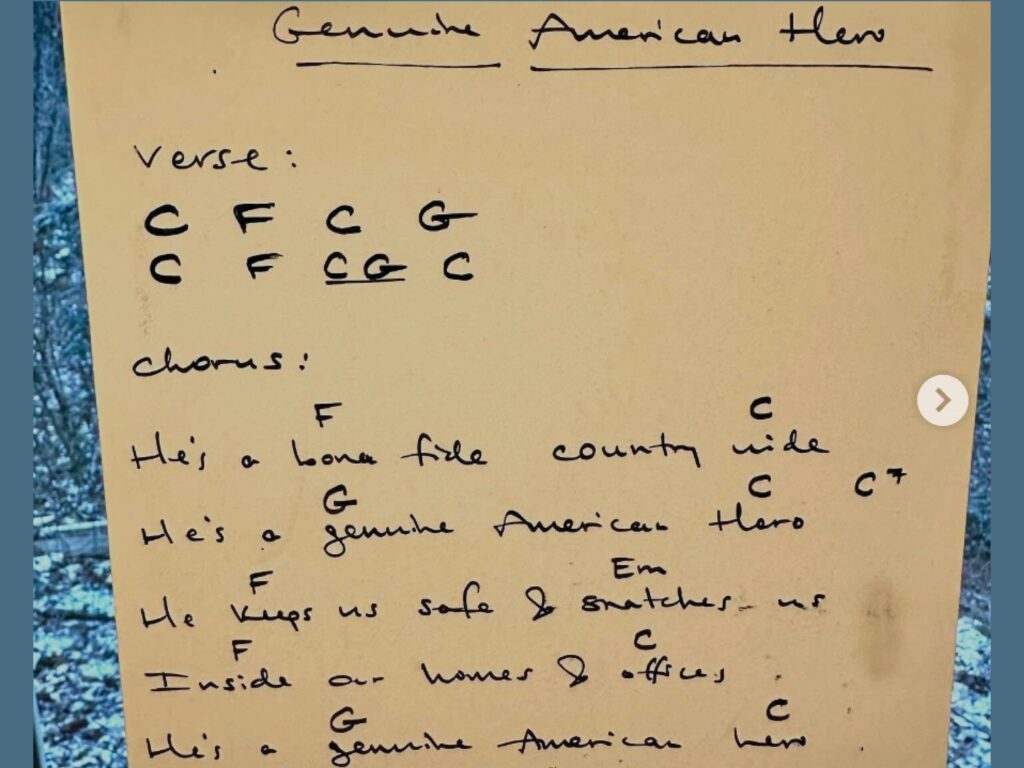 Genuine American Hero
verse:
C F C G
C F C G C
chorus:
F C
He's a bona fide country wide
G C C7
He's a genuine American Hero
F Em
He keeps us safe & snatches us
F C
Inside our homes & offices
G C
He's a genuine American hero